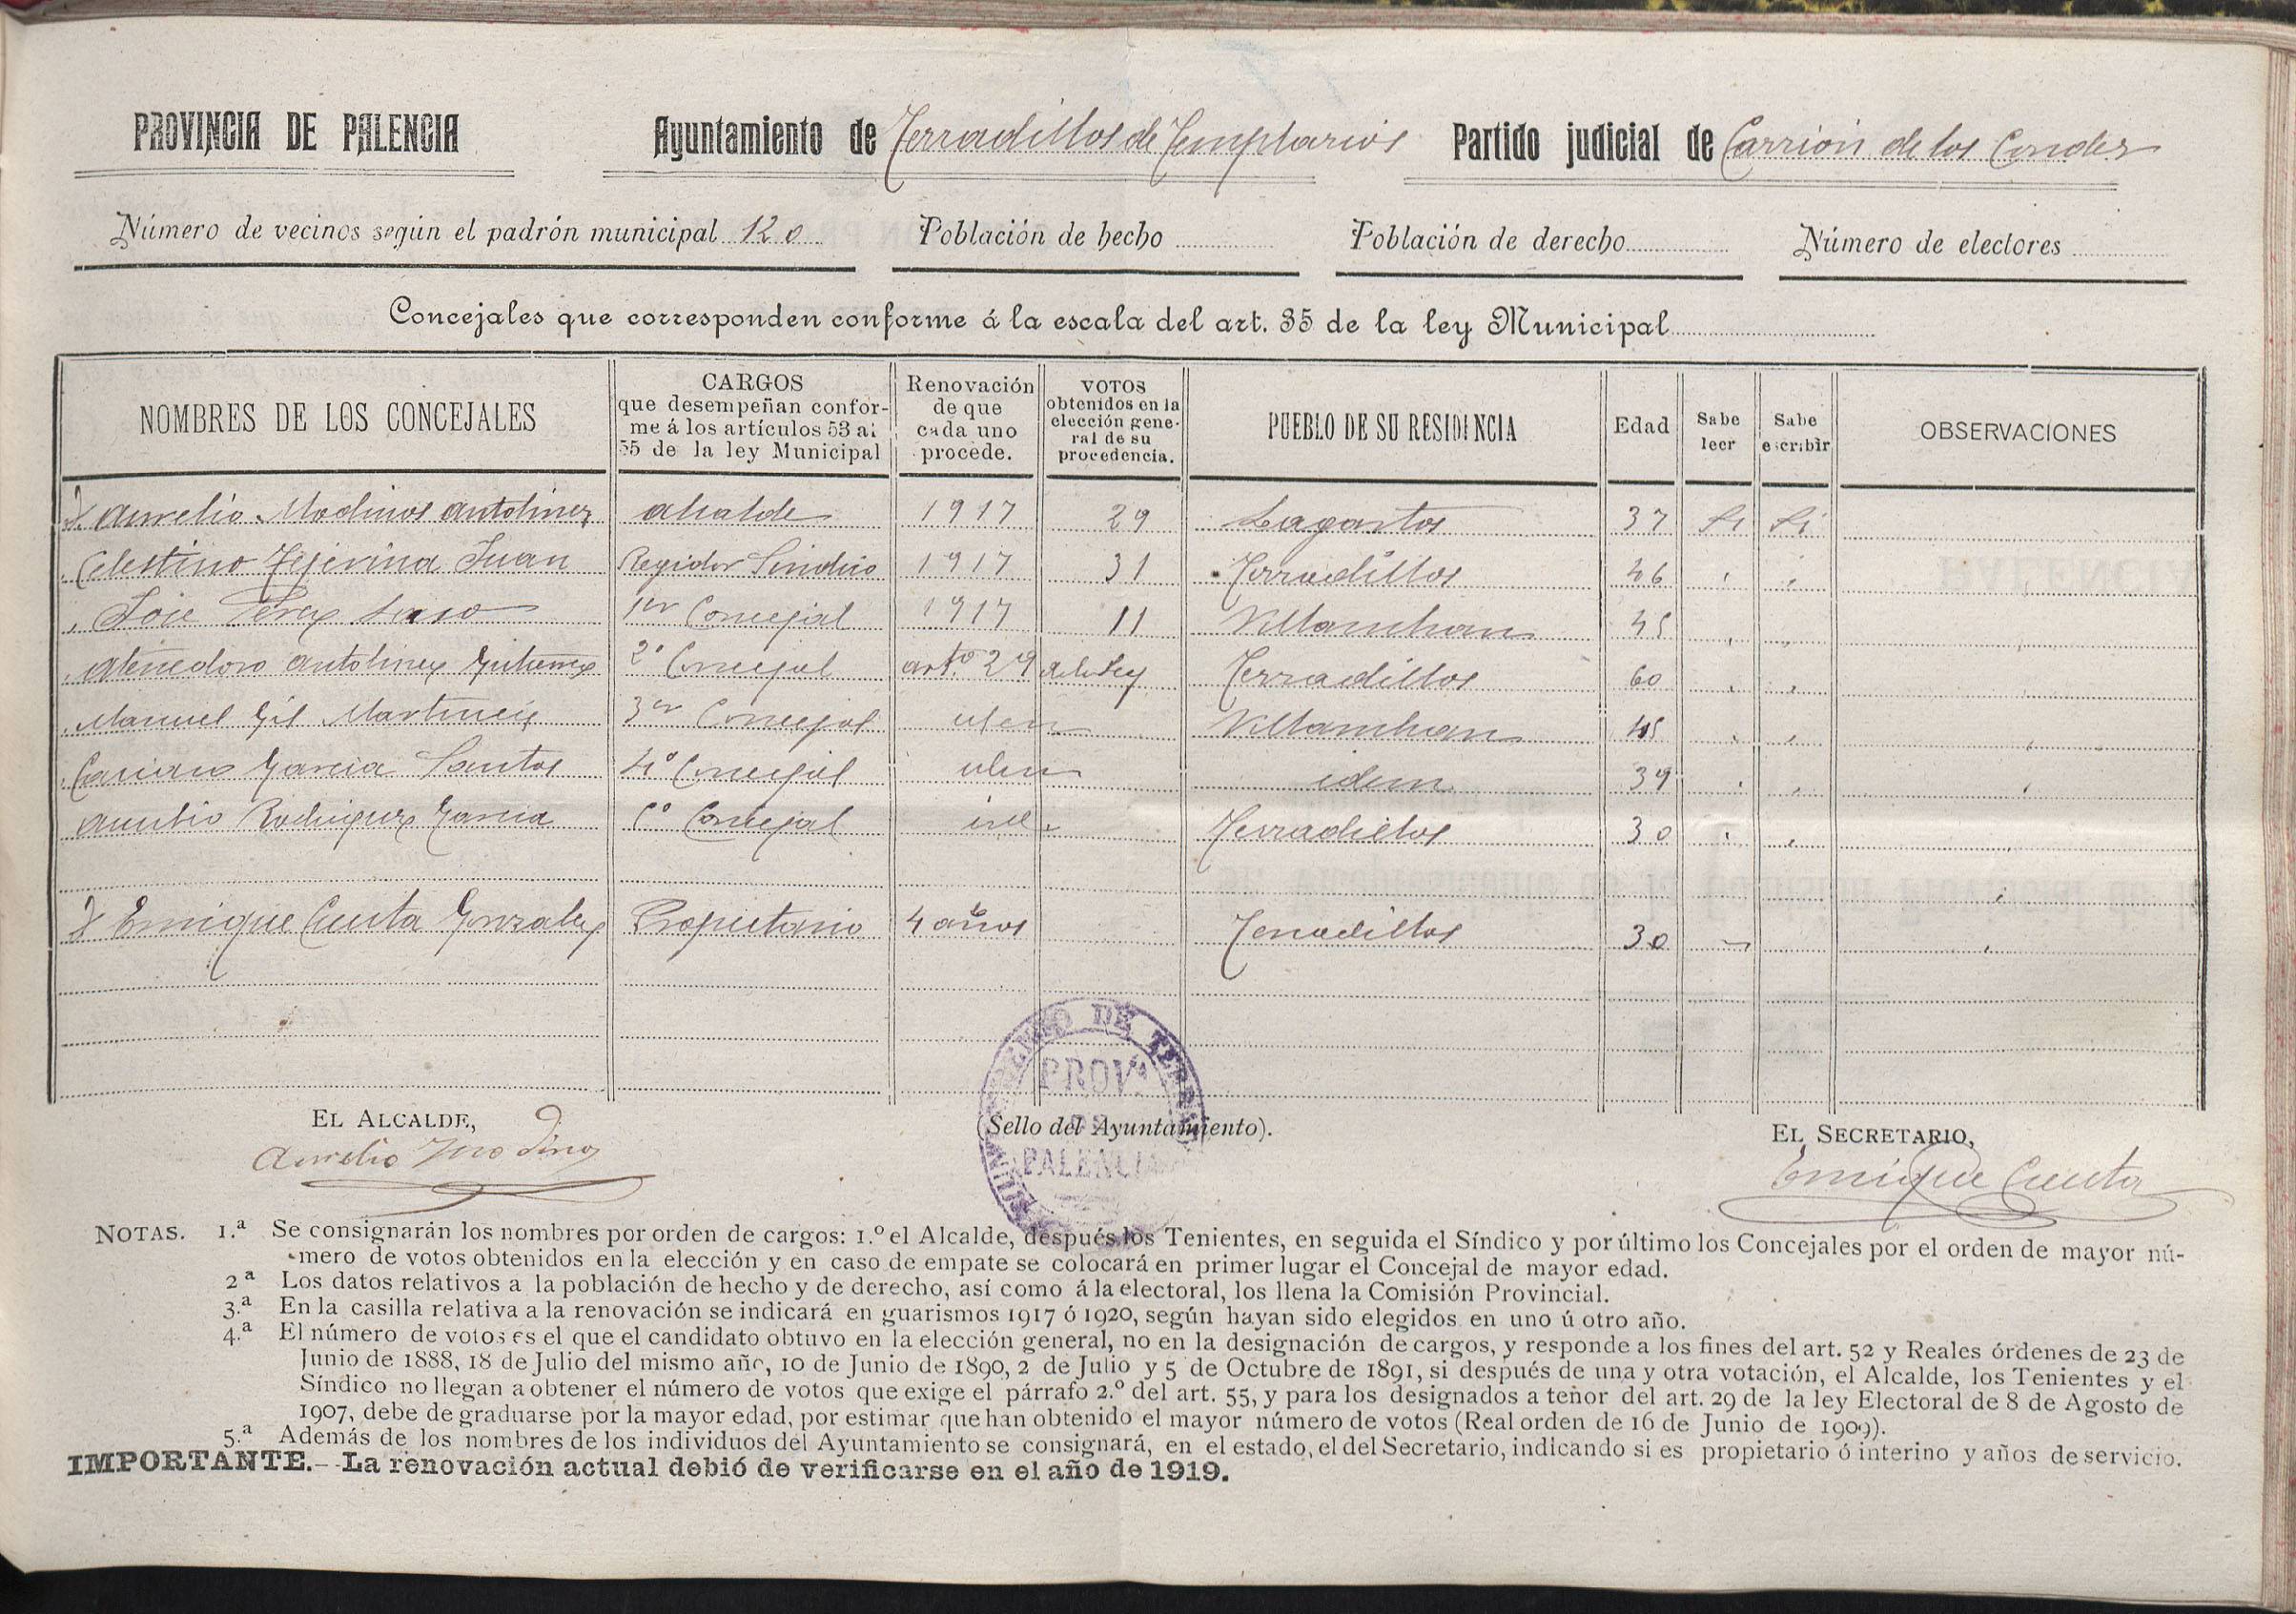 PROVINCIA DE PALENCIA Ayuntamiento de Terradillos de Templarios Partido judicial de Carrión de los Condes
Número de vecinos según el padrón municipal 120 Población de hecho Población de derecho Número de electores
Concejales que corresponden conforme á la escala del art. 35 de la ley Municipal
NOMBRES DE LOS CONCEJALES
CARGOS
que desempeñan confor-
me á los artículos 53 al
55 de la ley Municipal
Renovación
de que
cada uno
procede.
VOTOS
obtenidos en la
elección gene-
ral de su
procedencia.
PUEBLO DE SU RESIDENCIA
Edad
Sabe
leer
Sabe
escribir
OBSERVACIONES
D. Aurelio Modinos Antolinez Alcalde 1917 29 Lagartos 37 Si Si
" Celestino Tejerina Juan Regidor Sindico 1917 31 Terradillos 46 " "
" José Perez Laso 1er Concejal 1917 11 Villamhan 45 " "
" Atenedoro Antolinez Gutierrez 2º Concejal artº 29 de la Ley Terradillos 60 " "
" Manuel Gil Martinez 3er Concejal idem Villamhan 45 " " "
" García Santos 4º Concejal idem idem 39 " " "
Rodriguez Garcia 5º Concejal id. Terradillos 30 " " "
D. Enrique Cuesta Gonzalez Propietario 4 años Terradillos 30 " "
EL ALCALDE,
Aurelio Modinos
(Sello del Ayuntamiento).
DE TERR
PROVª
DE
PALENCIA
EL SECRETARIO,
Enrique Cuesta
NOTAS. 1.ª Se consignarán los nombres por orden de cargos: 1.º el Alcalde, después los Tenientes, en seguida el Síndico y por último los Concejales por el orden de mayor nú-
mero de votos obtenidos en la elección y en caso de empate se colocará en primer lugar el Concejal de mayor edad.
2ª Los datos relativos a la población de hecho y de derecho, así como á la electoral, los llena la Comisión Provincial.
3.ª En la casilla relativa a la renovación se indicará en guarismos 1917 ó 1920, según hayan sido elegidos en uno ú otro año.
4.ª El número de votos es el que el candidato obtuvo en la elección general, no en la designación de cargos, y responde a los fines del art. 52 y Reales órdenes de 23 de
Junio de 1888, 18 de Julio del mismo año, 10 de Junio de 1890, 2 de Julio y 5 de Octubre de 1891, si después de una y otra votación, el Alcalde, los Tenientes y el
Síndico no llegan a obtener el número de votos que exige el párrafo 2.º del art. 55, y para los designados a teñor del art. 29 de la ley Electoral de 8 de Agosto de
1907, debe de graduarse por la mayor edad, por estimar que han obtenido el mayor número de votos (Real orden de 16 de Junio de 1909).
5.ª Además de los nombres de los individuos del Ayuntamiento se consignará, en el estado, el del Secretario, indicando si es propietario ó interino y años de servicio.
IMPORTANTE.—La renovación actual debió de verificarse en el año de 1919.